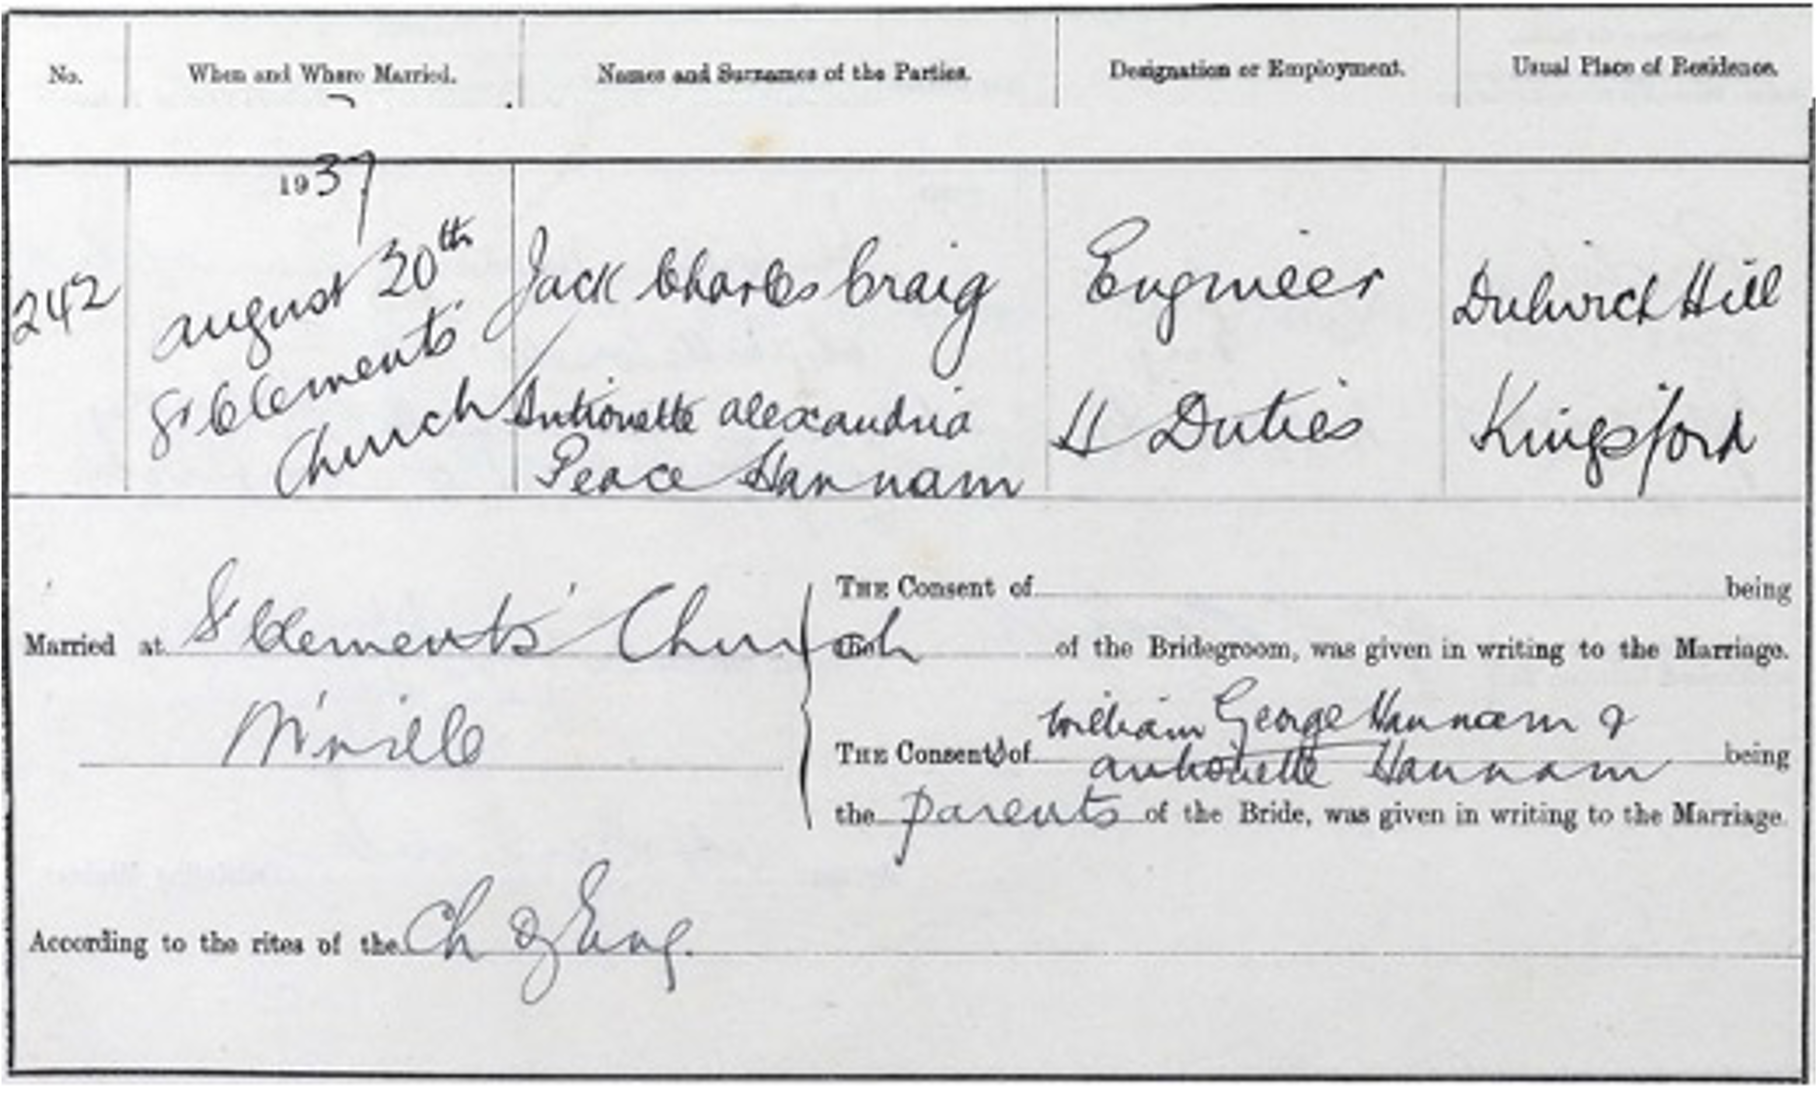 No. When and Where Married. Names and Surnames of the Parties. Designation or Employment. Usual Place of Residence.
1937
242 august 20th Jack Charles Craig Engineer Dulwich Hill
St Clements'
Church Antionette alexandria H Duties Kingsford
Peace Hannam
THE Consent of being
Married at St Clements' Church the of the Bridegroom, was given in writing to the Marriage.
M'ville William George Hannam &
THE Consents of antionette Hannam being
the parents of the Bride, was given in writing to the Marriage.
According to the rites of the Ch of Eng.